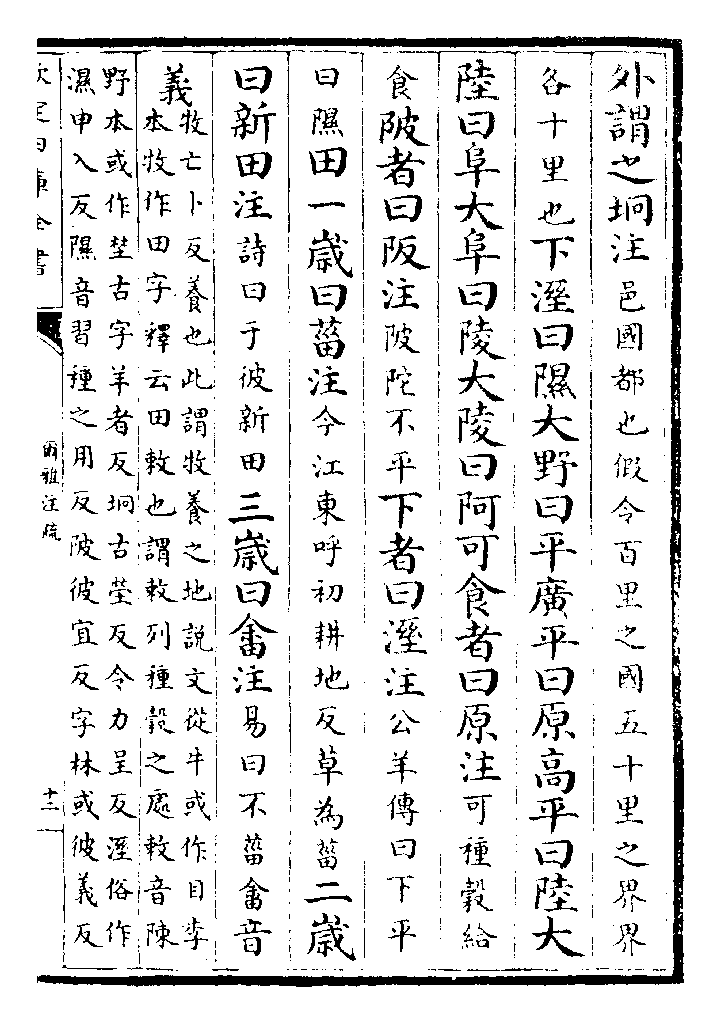 外謂之坰注邑國都也假令百里之國五十里之界界
各十里也下溼曰隰大野曰平廣平曰原高平曰陸大
陸曰阜大阜曰陵大陵曰阿可食者曰原注可種穀給
食陂者曰阪注陂陀不平下者曰溼注公羊傳曰下平
曰隰田一歲曰菑注今江東呼初耕地反草為菑二歲
曰新田注詩曰于彼新田三歲曰畬注易曰不菑畬音
義牧亡卜反養也此謂牧養之地說文從牛或作目李
本牧作田字釋云田敕也謂敕列種穀之處敕音陳
野本或作埜古字羊者反坰古莹反令力呈反溼俗作
濕申入反隰音習種之用反陂彼宜反字林或彼義反
欽定四庫全書
爾雅注疏
十二